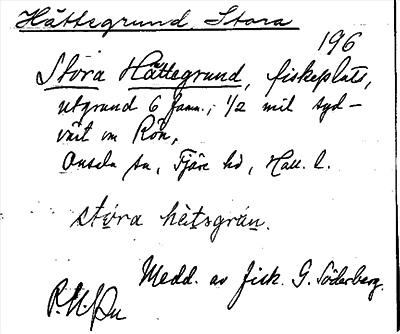 Hättegrund, Stora
196
Stora Hättegrund, fiskeplats,
utgrund 6 famn.; 1/2 mil syd-
väst om Rön,
Onsala sn, Fjäre hd, Hall. l.
stóra hètsgrún.
Medd. av fisk. G. Söderberg.